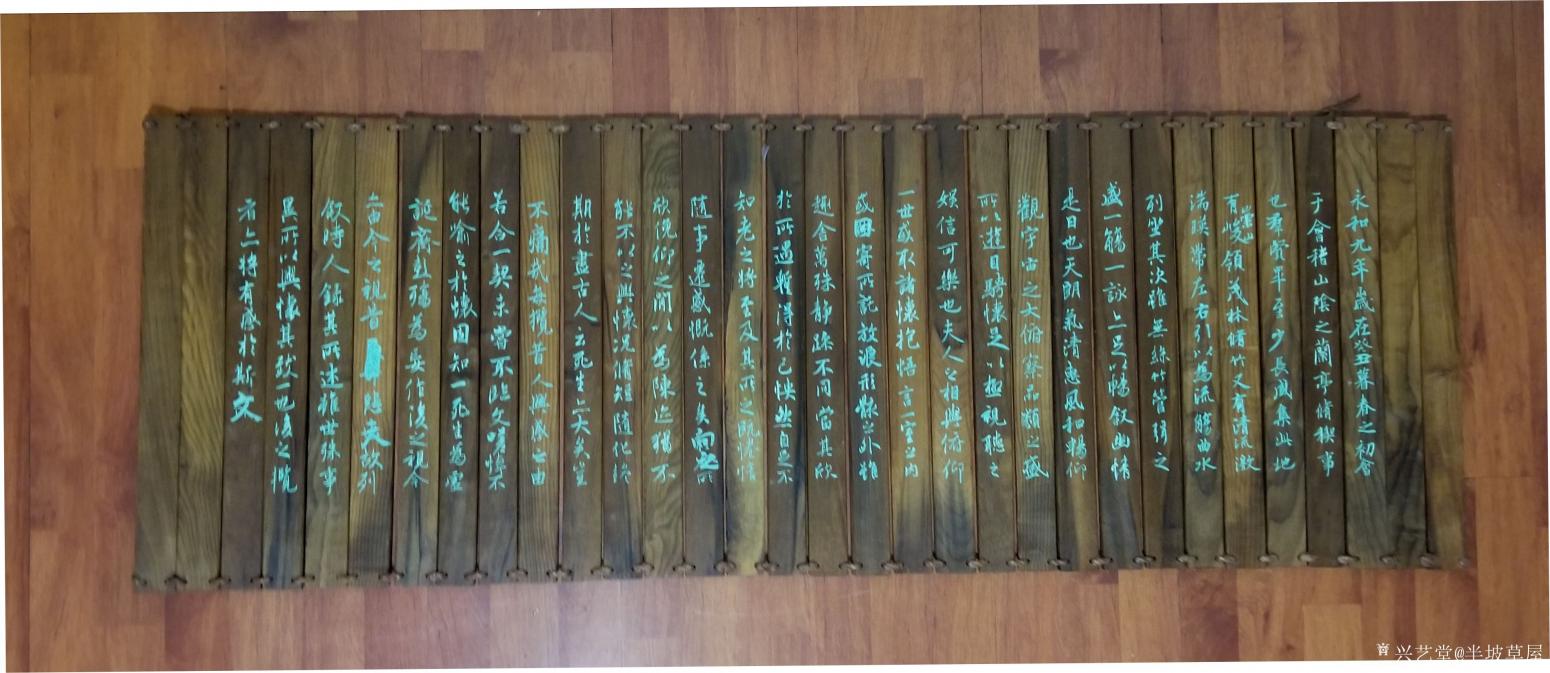 永和九年歲在癸丑暮春之初會
于會稽山陰之蘭亭脩稧事
也羣賢畢至少長咸集此地
有崇山峻領茂林脩竹又有清流激
湍暎帶左右引以為流觴曲水
列坐其次雖無絲竹管弦之
盛一觴一詠亦足以暢叙幽情
是日也天朗氣清惠風和暢仰
觀宇宙之大俯察品類之盛
所以遊目騁懷足以極視聽之
娛信可樂也夫人之相與俯仰
一世或取諸懷抱悟言一室之內
或因寄所託放浪形骸之外雖
趣舍萬殊靜躁不同當其欣
於所遇暫得於己怏然自足不
知老之將至及其所之既惓情
隨事遷感慨係之矣向之所
欣俛仰之間以為陳迹猶不
能不以之興懷況脩短隨化終
期於盡古人云死生亦大矣豈
不痛哉每攬昔人興感之由
若合一契未嘗不臨文嗟悼不
能喻之於懷固知一死生為虛
誕齊彭殤為妄作後之視今
亦由今之視昔悲夫故列
叙時人錄其所述雖世殊事
異所以興懷其致一也後之攬
者亦將有感於斯文
兴艺堂@半坡草屋